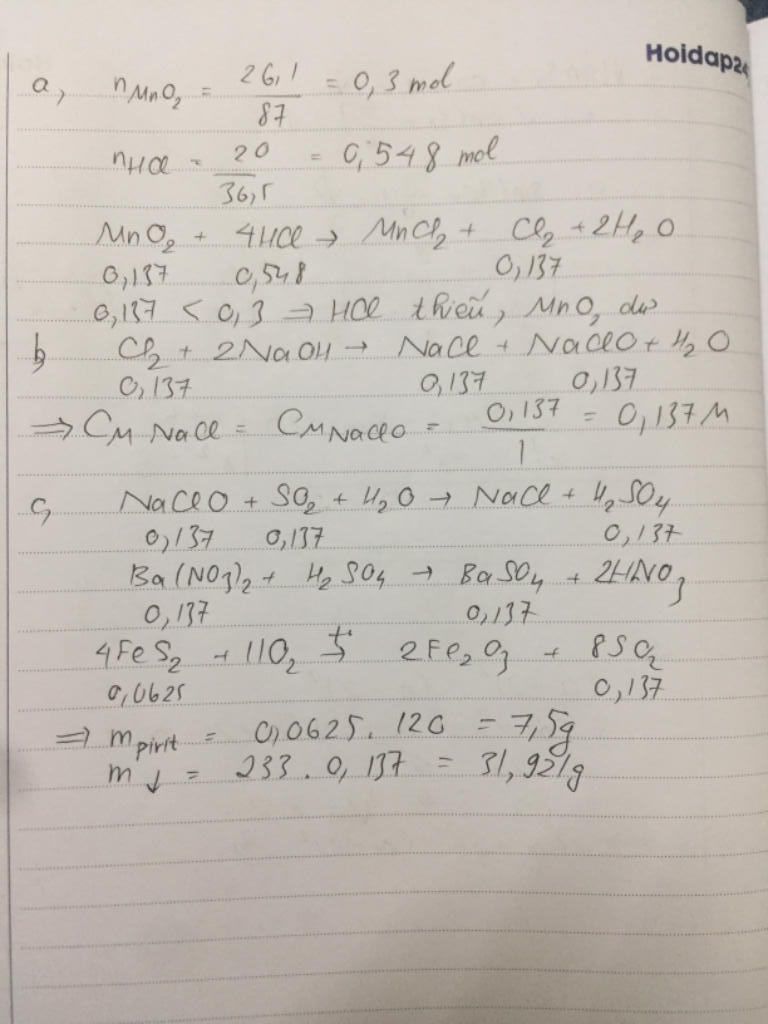 Hoidap24
a, nMnO₂ = 26,1/87 = 0,3 mol
nHCl = 20/36,5 = 0,548 mol
MnO₂ + 4HCl → MnCl₂ + Cl₂ + 2H₂O
0,137 0,548 0,137
0,137 < 0,3 ⇒ HCl thiếu, MnO₂ dư
b, Cl₂ + 2NaOH → NaCl + NaClO + H₂O
0,137 0,137 0,137
⇒ CM NaCl = CM NaClO = 0,137/1 = 0,137M
c, NaClO + SO₂ + H₂O → NaCl + H₂SO₄
0,137 0,137 0,137
Ba(NO₃)₂ + H₂SO₄ → BaSO₄ + 2HNO₃
0,137 0,137
4FeS₂ + 11O₂ t° → 2Fe₂O₃ + 8SO₂
0,0625 0,137
⇒ m pirit = 0,0625.120 = 7,5g
m↓ = 233.0,137 = 31,921g